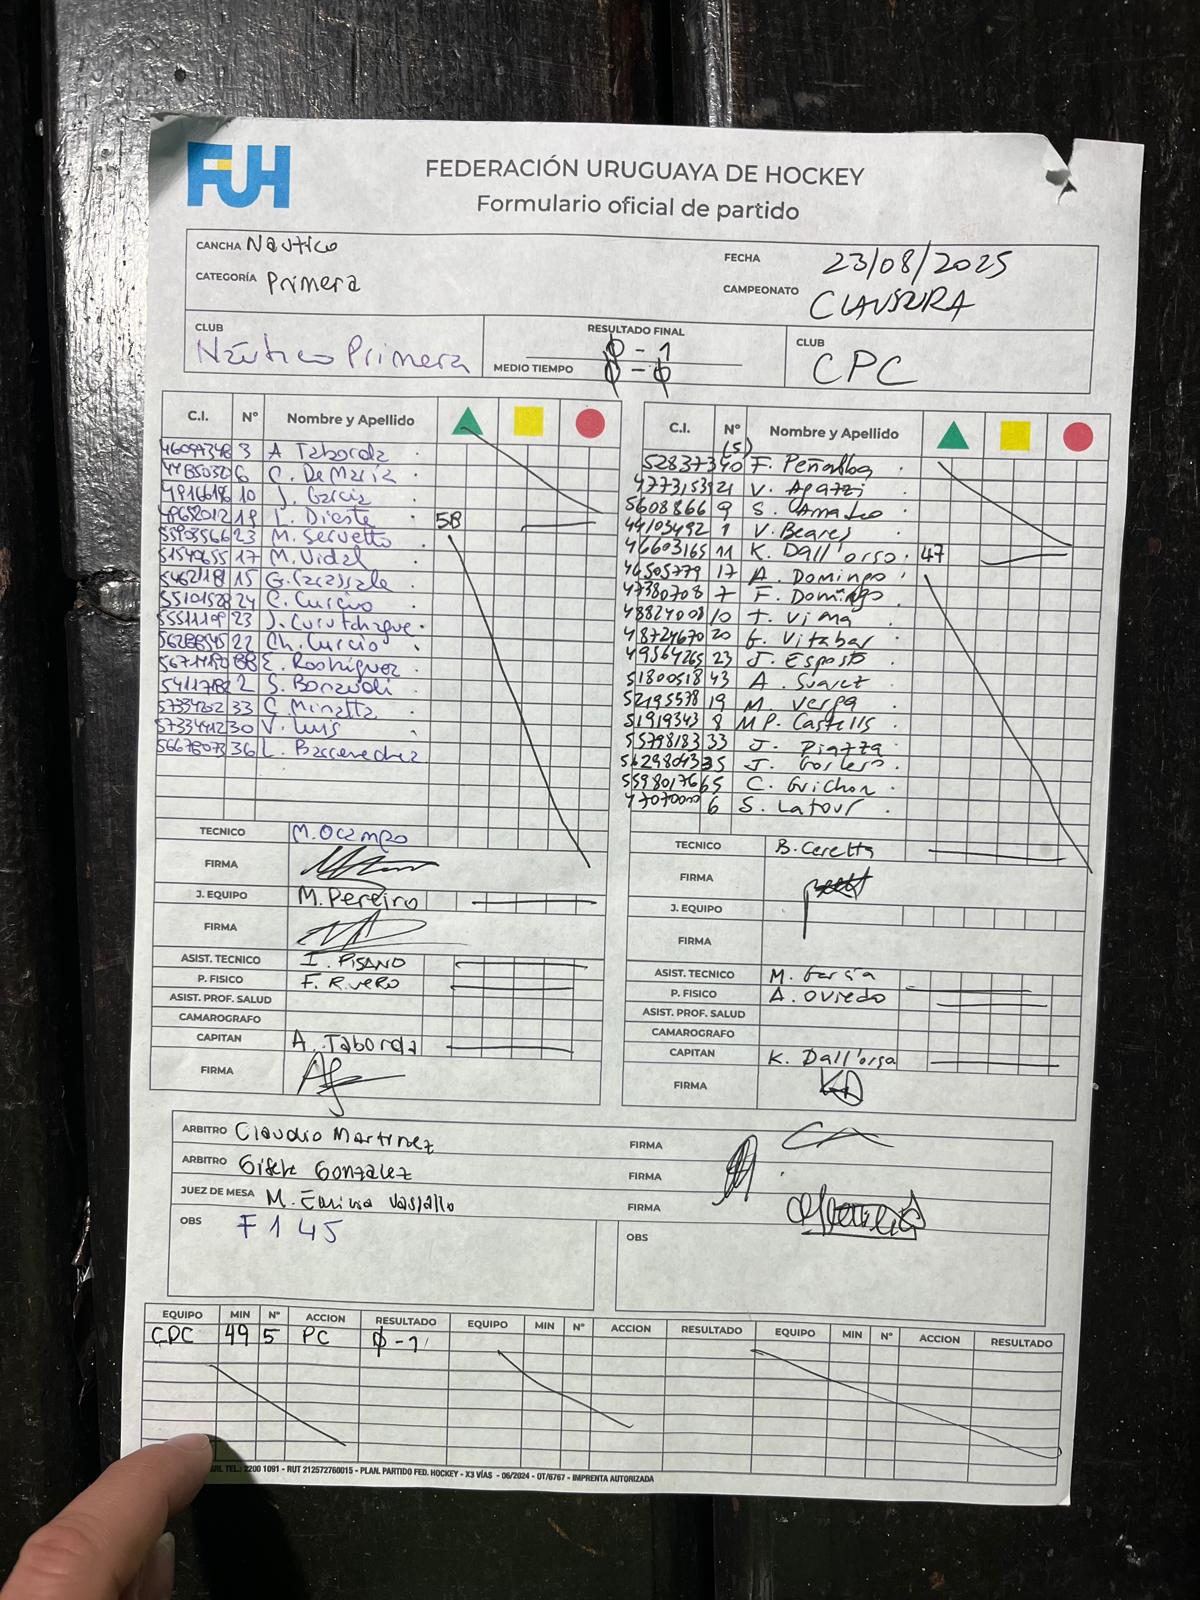 FUH
FEDERACIÓN URUGUAYA DE HOCKEY
Formulario oficial de partido
CANCHA Náutico
FECHA 23/08/2025
CATEGORÍA Primera
CAMPEONATO CLAUSURA
CLUB Náutico Primera
RESULTADO FINAL 0 - 1
MEDIO TIEMPO 0 - 0
CLUB CPC
C.I. Nº Nombre y Apellido
3 A Taborda
6 C. De María
10 J. García
L. Dieste 58
23 M. Servetto
17 M. Vidal
15
24 C. Curcio
23 J. Curutchague
22 Ch. Curcio
88 E. Rodriguez
2
33 C. Minatta
30 V. Luis
36 L.
TECNICO M. Ocampo
FIRMA
J. EQUIPO M. Pereiro
FIRMA
ASIST. TECNICO I. PISANO
P. FISICO F. RIVERO
ASIST. PROF. SALUD
CAMAROGRAFO
CAPITAN A. Taborda
FIRMA
C.I. Nº Nombre y Apellido
(5)
F. Peñalba
21 V. Apazzi
5608866 9 S. Amateo
44103492 1 V. Beares
46603165 11 K. Dall'orso 47
46505779 17 A. Domingo
47380708 7 F. Domingo
10 T. Viana
48724670 20 F. Vitabar
49564265 23 J. Esposto
51800518 43 A. Suarez
52195538 19 M. Verga
51919343 8 MP. Castells
55798183 33 J. Piazza
35 J.
65 C. Guichon
6 S. Latour
TECNICO B. Ceretta
FIRMA
J. EQUIPO
FIRMA
ASIST. TECNICO M. García
P. FISICO A. Oviedo
ASIST. PROF. SALUD
CAMAROGRAFO
CAPITAN K. Dall'orsa
FIRMA KD
ARBITRO Claudio Martinez FIRMA
ARBITRO Gisele Gonzalez FIRMA
JUEZ DE MESA M. Emilia Vassallo FIRMA
OBS F 1 45
OBS
EQUIPO MIN Nº ACCION RESULTADO EQUIPO MIN Nº ACCION RESULTADO EQUIPO MIN Nº ACCION RESULTADO
CPC 49 5 PC 0 - 1
TEL.: 2200 1091 - RUT 212572760015 - PLAN. PARTIDO FED. HOCKEY - X3 VÍAS - 06/2024 - OT/6767 - IMPRENTA AUTORIZADA